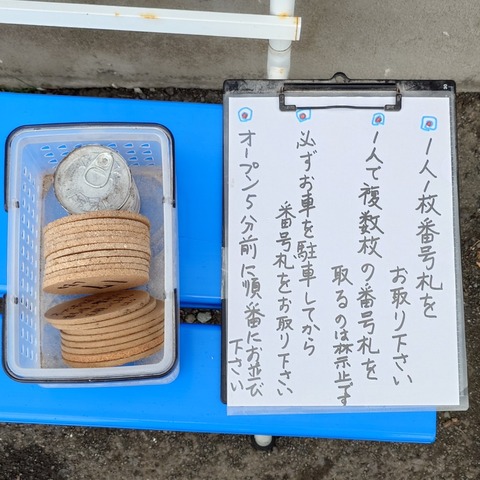 1人1枚番号札を
お取り下さい
1人で複数枚の番号札を
取るのは禁止です
必ずお車を駐車してから
番号札をお取り下さい
オープン5分前に順番にお並び
下さい